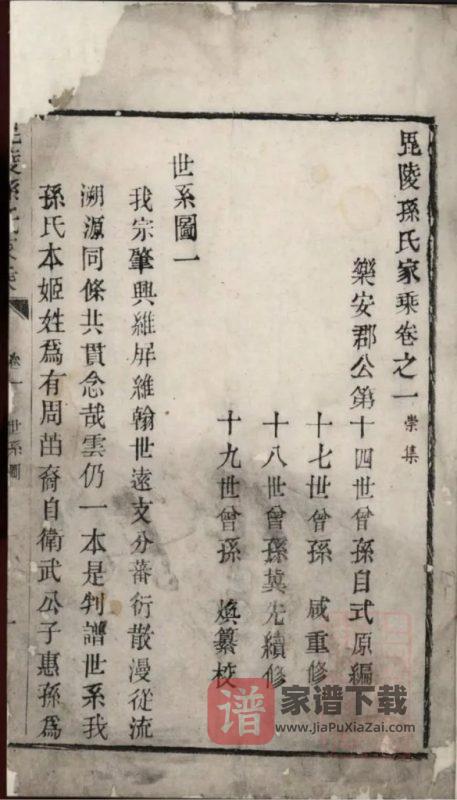 毘陵孫氏家乘卷之一 崇集
樂安郡公第十四世曾孫自式原編
十七世曾孫 咸重修
十八世曾孫蓂先續修
十九世曾孫 煥纂校
世系圖一
我宗肇興維屏維翰世遠支分蕃衍散漫從流
溯源同條共貫念哉雲仍一本是判譜世系我
孫氏本姬姓爲有周苗裔自衛武公子惠孫爲
毘陵孫氏家乘
卷一 世系圖 一
谱 家谱下载
www.JiaPuXiaZai.com